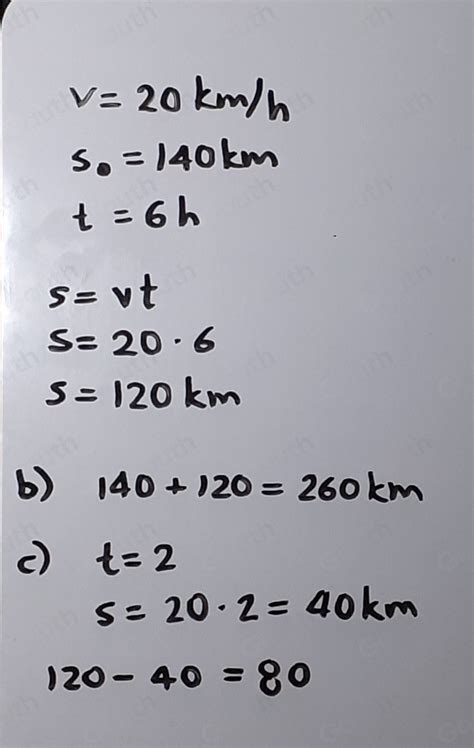 v = 20 km/h
s. = 140 km
t = 6 h
s = vt
s = 20 · 6
s = 120 km
b) 140 + 120 = 260 km
c) t = 2
s = 20 · 2 = 40 km
120 - 40 = 80